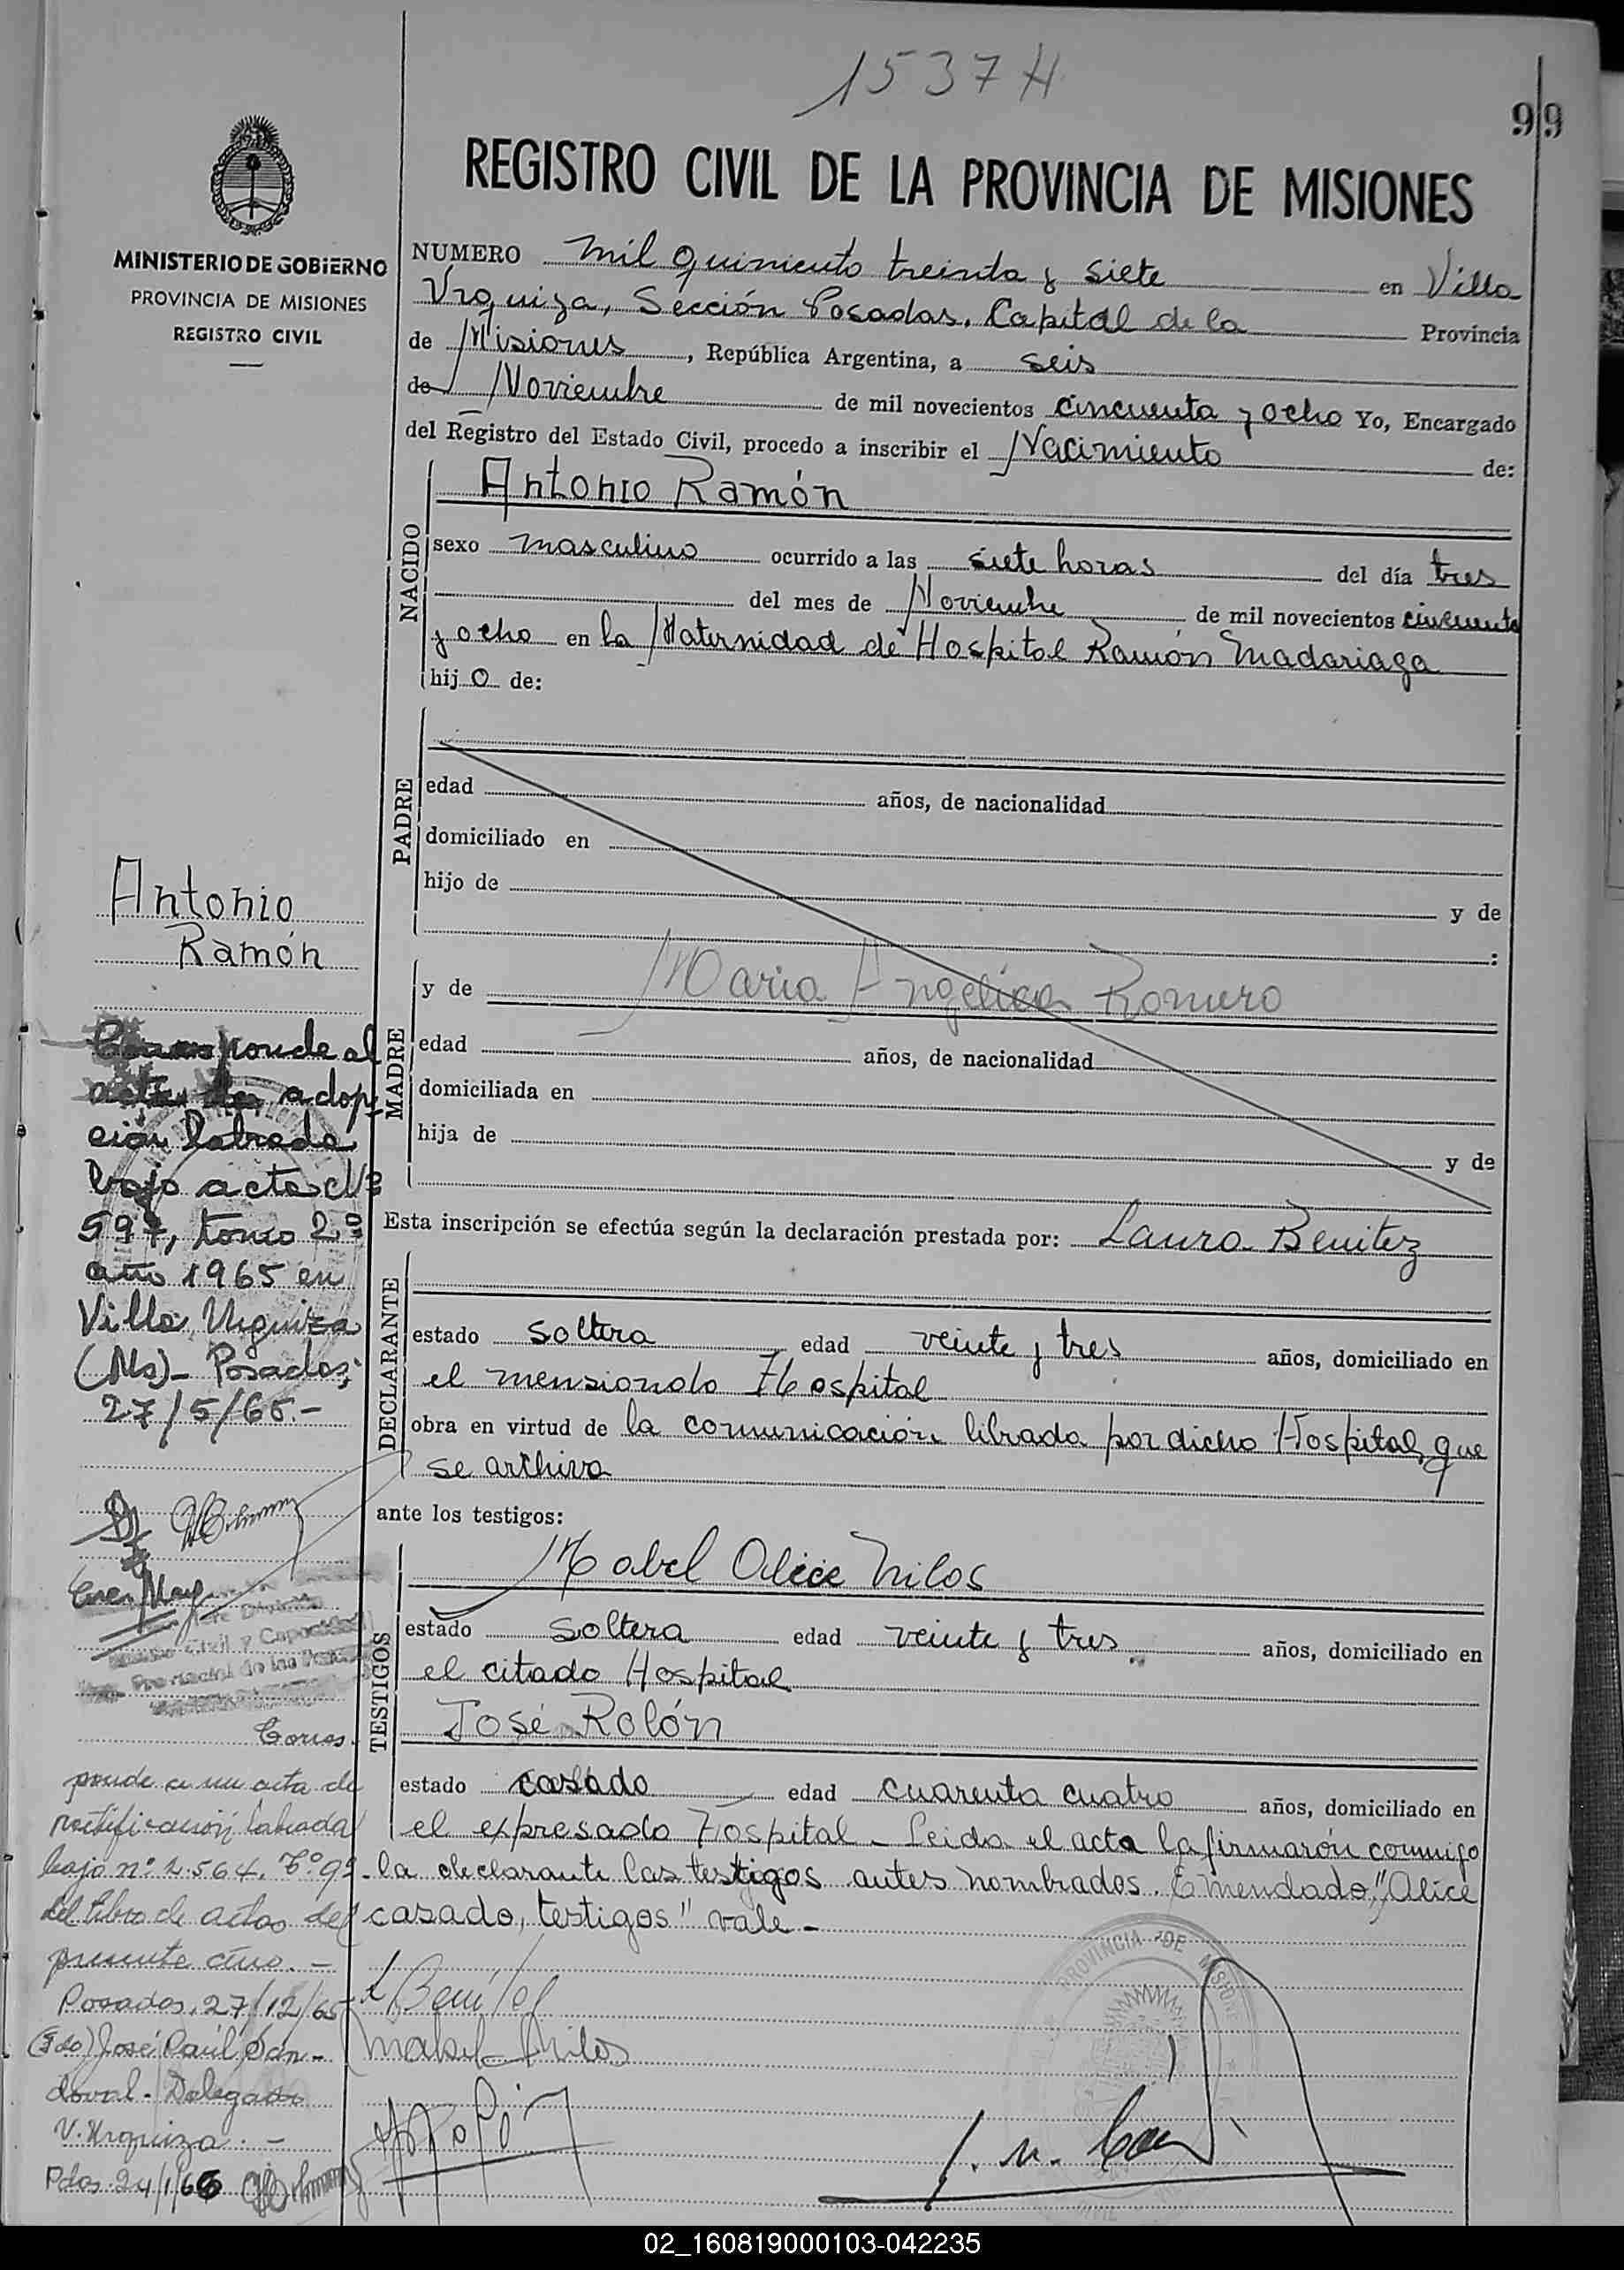 1537 H
99
REGISTRO CIVIL DE LA PROVINCIA DE MISIONES
MINISTERIO DE GOBIERNO
PROVINCIA DE MISIONES
REGISTRO CIVIL
NUMERO mil quiniento treinta y siete en Villa
Urquiza, Sección Posadas, Capital de la Provincia
de Misiones, República Argentina, a seis
de Noviembre de mil novecientos cincuenta y ocho Yo, Encargado
del Registro del Estado Civil, procedo a inscribir el Nacimiento de:
NACIDO
Antonio Ramón
sexo masculino ocurrido a las siete horas del día tres
del mes de Noviembre de mil novecientos cincuenta
y ocho en la Maternidad de Hospital Ramón Madariaga
hijo de:
PADRE
edad años, de nacionalidad
domiciliado en
hijo de y de
:
MADRE
y de Maria Angelica Romero
edad años, de nacionalidad
domiciliada en
hija de y de
Esta inscripción se efectúa según la declaración prestada por: Laura Benitez
DECLARANTE
estado soltera edad veinte y tres años, domiciliado en
el mensionado Hospital
obra en virtud de la comunicación librada por dicho Hospital, que
se archiva
ante los testigos:
TESTIGOS
Mabel Alice Milos
estado soltera edad veinte y tres años, domiciliado en
el citado Hospital
José Rolón
estado casado edad cuarenta cuatro años, domiciliado en
el expresado Hospital - Leida el acta la firmarón conmigo
la declarante las testigos antes nombrados. Emendado, "Alice
casado, testigos" vale -
L Benítez
Mabel Milos
PROVINCIA DE MISIONES
CIVIL
Antonio
Ramón
ponde al
acta de adop
ción labrada
bajo acta Nº
597, tomo 2º
año 1965 en
Villa Urquiza
(Ms)- Posadas,
27/5/65.-
Civil y Capacidad
Provincial de las Personas
Corres
ponde a un acta de
rectificación labrada
bajo nº 2.564, Tº 9º
del libro de actas del
presente año. -
Posadas, 27/12/65
(Fdo) José Raúl San-
doval - Delegado
V. Urquiza. -
Pdas. 24/1/66
02_160819000103-042235